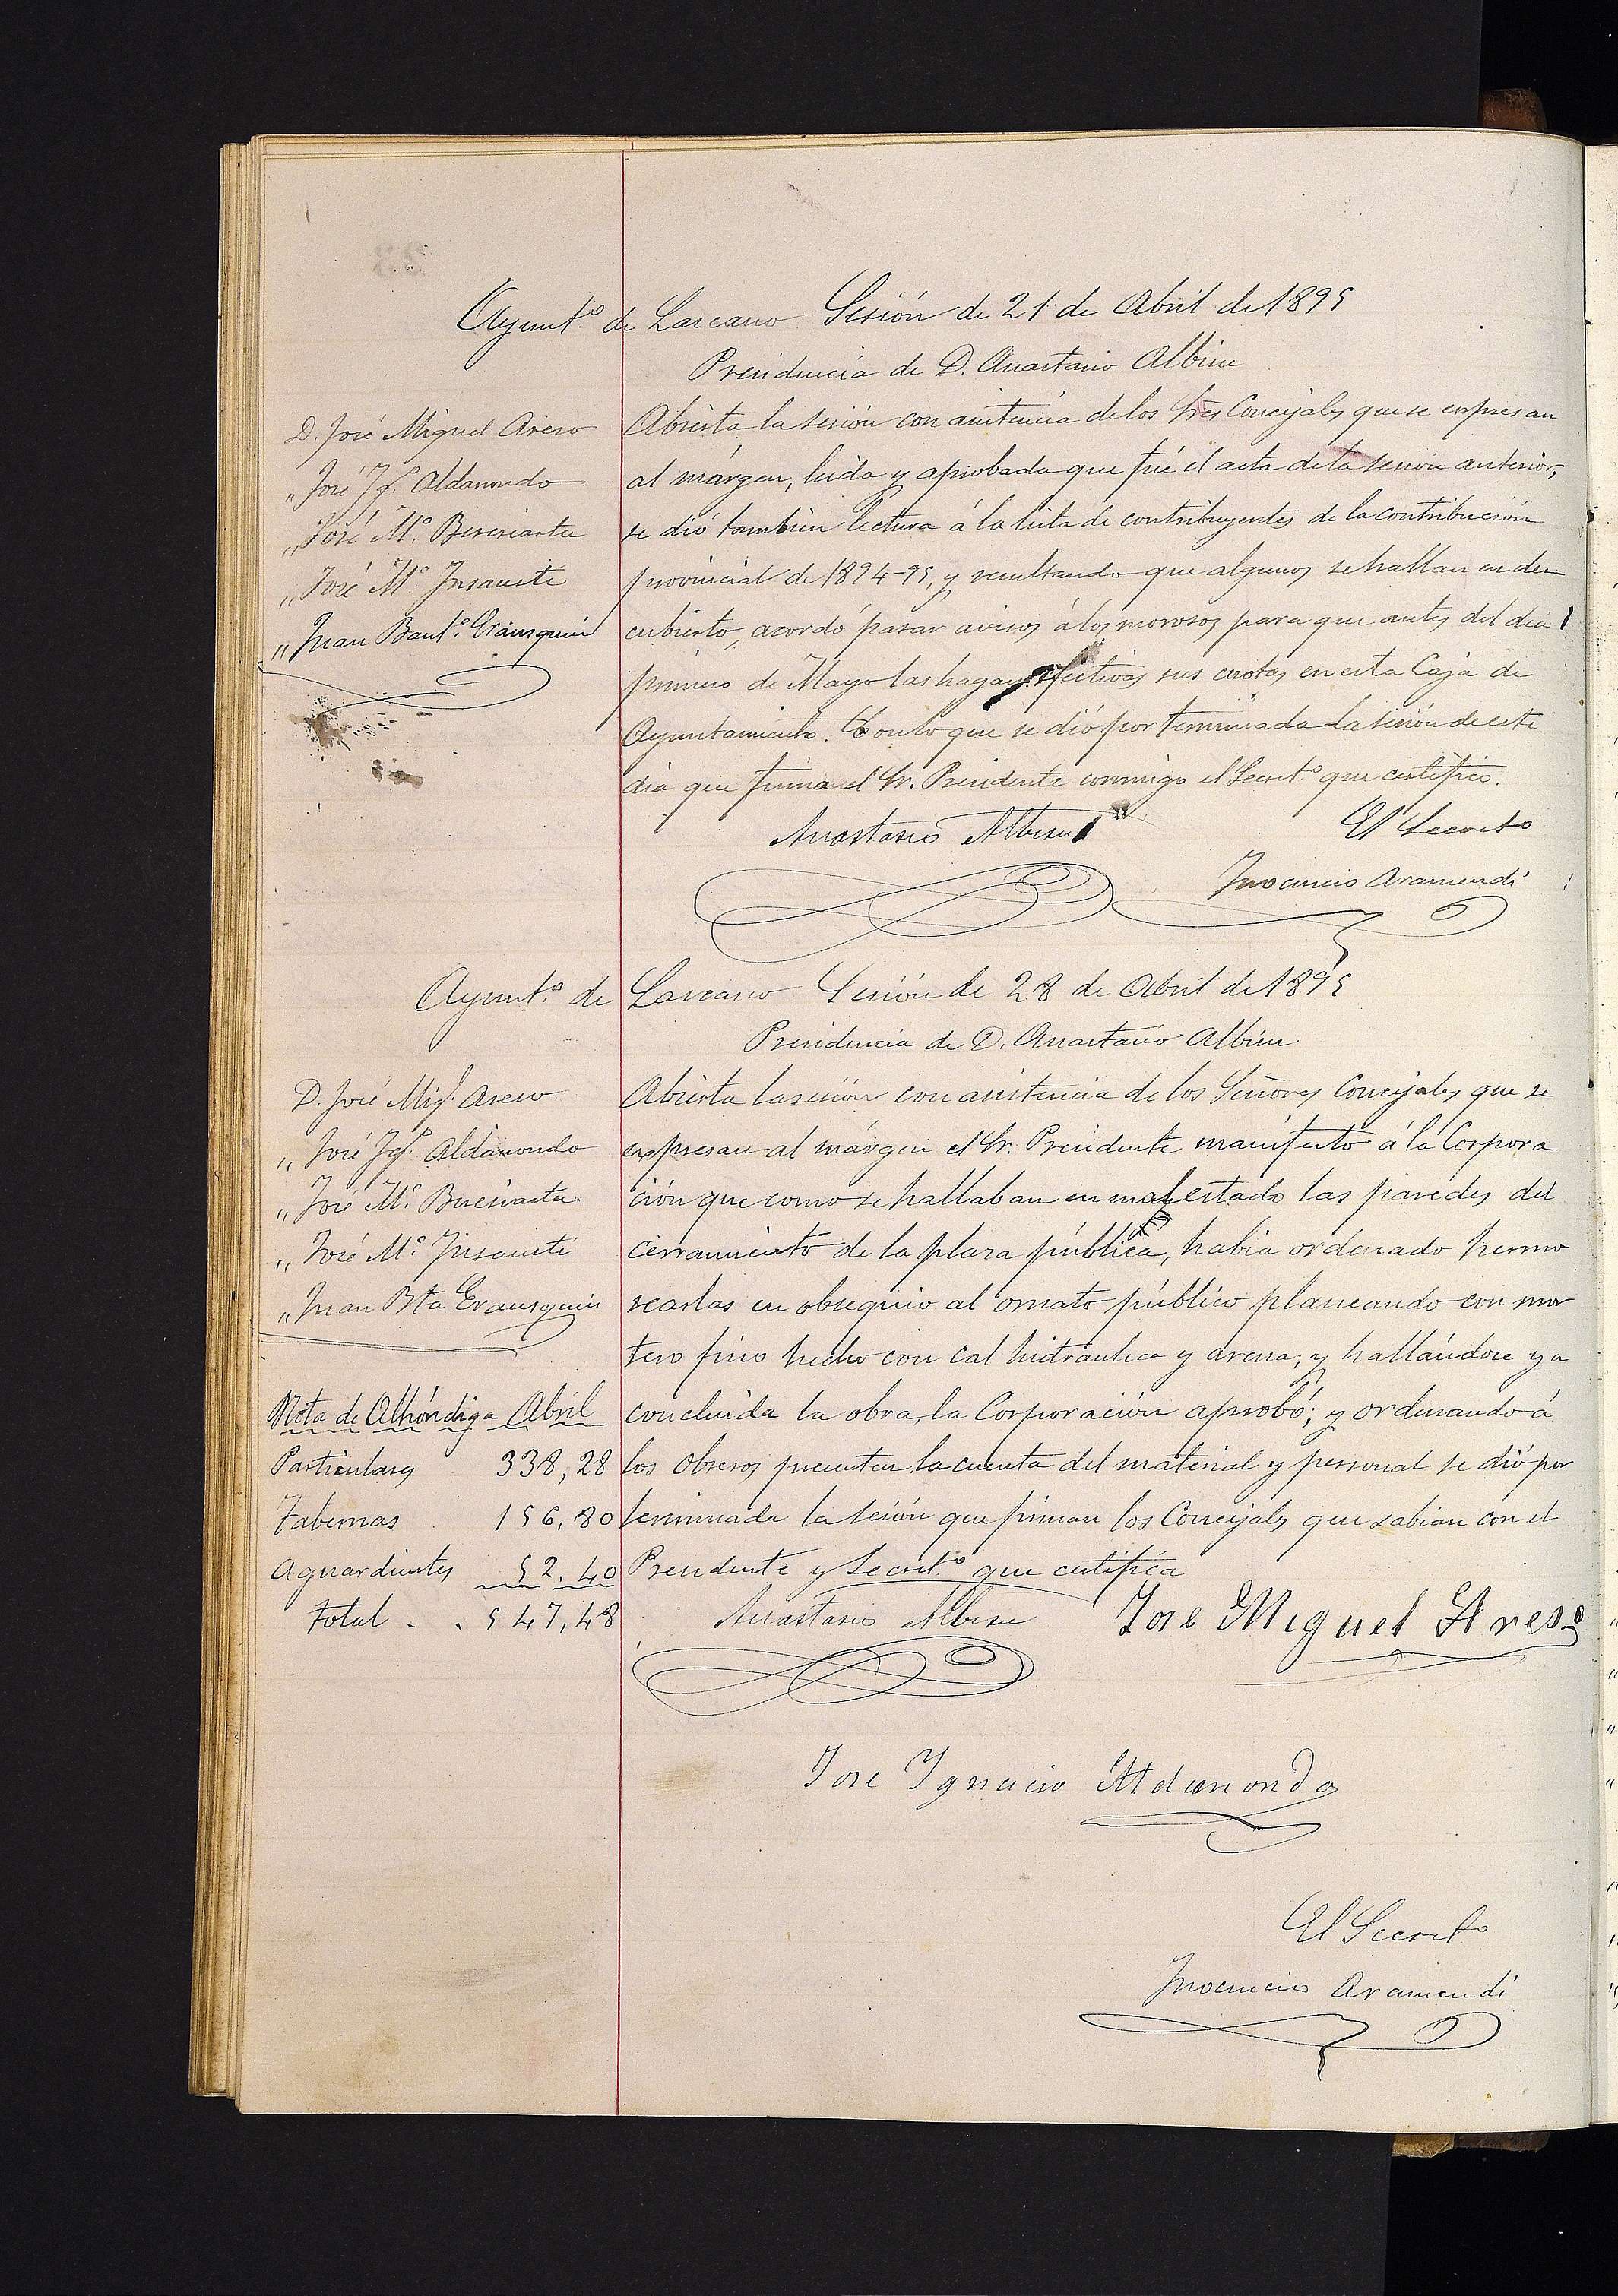 Ayunt.º de Lazcano Sesión de 21 de Abril de 1895
Presidencia de D. Anastasio Albisu
D. José Miguel Areso
" José Ygº. Aldanondo
" José M.ª Beresiartu
" José M.ª Insausti
" Juan Baut.ª Erausquin
Abierta la sesión con asistencia de los Sres Concejales que se espresan
al márgen, leida y aprobada que fué el acta de la sesion anterior,
se dió tambien lectura á la lista de contribuyentes de la contribución
provincial de 1894-95, y resultando que algunos se hallan en des
cubierto, acordó pasar avisos á los morosos para que antes del dia
primero de Mayo las hagan efectivas sus cuotas en esta Caja de
Ayuntamiento. Con lo que se dió por terminada la sesión de este
dia que firma el Sr. Presidente conmigo el Secret.º que certifico.
Anastasio Albisu
El Secreto
Inocencio Aramendi
Ayunt.º de Lazcano Sesión de 28 de Abril de 1895
Presidencia de D. Anastasio Albisu
D. José Migl. Areso
" José Ygº. Aldanondo
" José M.ª Beresiartu
" José M.ª Insausti
" Juan Bta Erausquin
Abierta la sesión con asistencia de los Señores Concejales que se
espresan al márgen el Sr. Presidente manifestó á la Corpora
ción que como se hallaban en mal estado las paredes del
cerramiento de la plaza pública, habia ordenado hermo
searlas en obsequio al ornato público planeando con mor
tero fino hecho con cal hidráulica y arena; y hallándose ya
concluida la obra, la Corporación aprobó; y ordenando á
los obreros presenten la cuenta del material y personal se dió por
terminada la sesión que firman los Concejales que sabian con el
Presidente y Secret.º que certifica
Nota de Alhóndiga Abril
Particulares 338,28
Tabernas 156,80
Aguardientes 52.40
Total . . 547,48
Anastasio Albisu
Jose Miguel Areso
Jose Ygnacio Aldanondo
El Secreto
Inocencio Aramendi